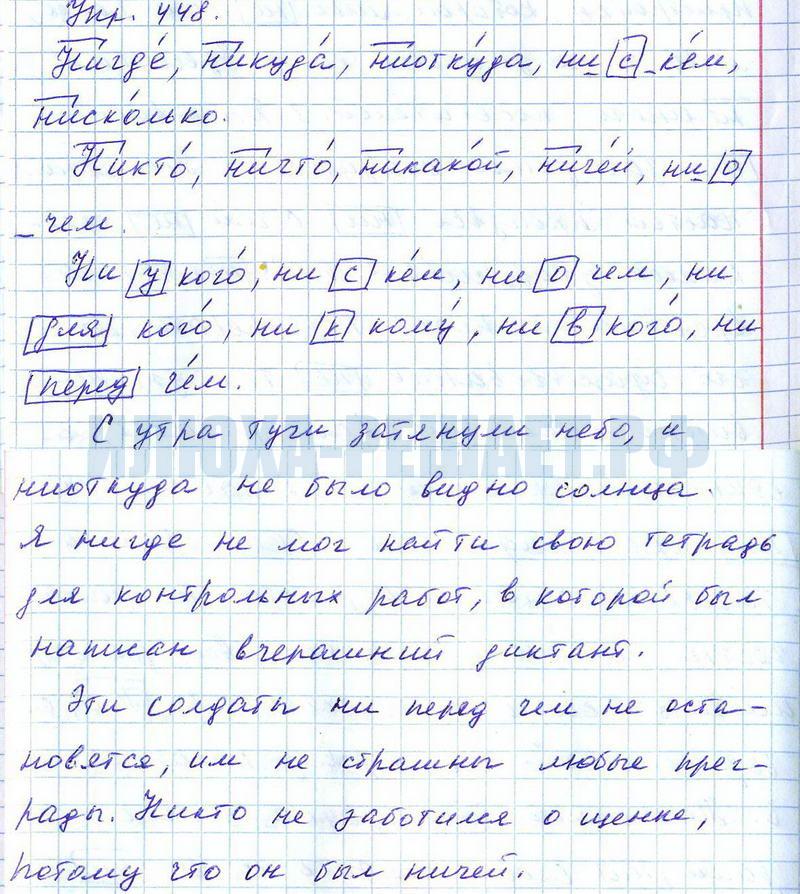 Упр. 448.
Нигде́, никуда́, ниотку́да, ни с ке́м,
ниско́лько.
Никто́, ничто́, никако́й, ниче́й, ни о
чем.
Ни у кого́, ни с ке́м, ни о чем, ни
для кого́, ни к кому́, ни в кого́, ни
перед че́м.
С утра тучи затянули небо, и
ИЛЮХА-РЕШАЕТ.РФ
ниоткуда не было видно солнца.
Я нигде не мог найти свою тетрадь
для контрольных работ, в которой был
написан вчерашний диктант.
Эти солдаты ни перед чем не оста-
новятся, им не страшны любые прег-
рады. Никто не заботился о щенке,
потому что он был ничей.